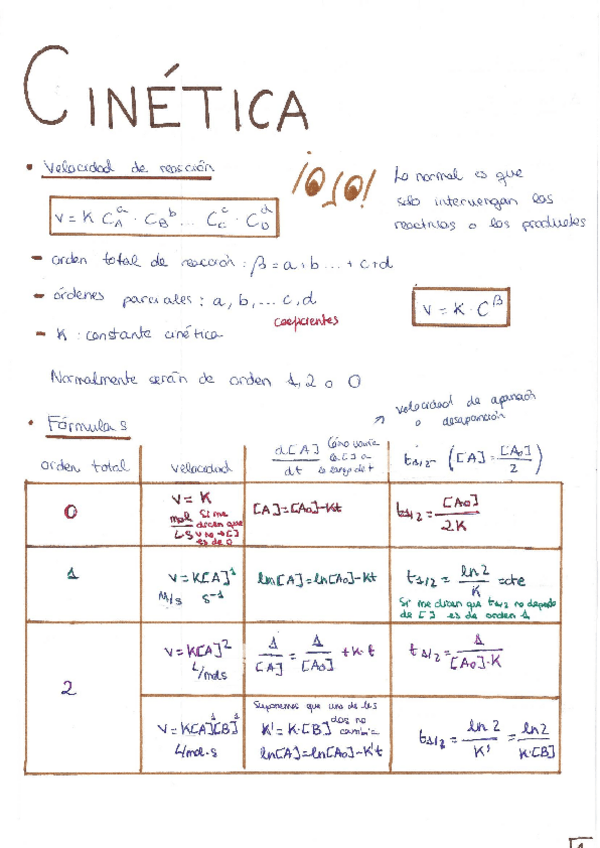 CINÉTICA
• Velocidad de reacción
¡OJO!
Lo normal es que
solo intervengan los
reactivos o los productos
V = K C_A^a · C_B^b ... C_C^c · C_D^d
- orden total de reacción: β = a + b ... + c + d
- órdenes parciales: a, b, ... c, d
coeficientes
V = K · C^β
- K: constante cinética
Normalmente serán de orden 1, 2 o 0
velocidad de aparición
o desaparición
• Fórmulas
orden total
velocidad
d[A]/dt Cómo varía la [] a lo largo de t
t1/2 → ([A] = [A0]/2)
0
V = K
mol/L·S
Si me
dicen que
v no → []
es de 0
[A] = [A0] - Kt
t1/2 = [A0]/2K
1
V = K[A]^1
M/s s^-1
ln[A] = ln[A0] - Kt
t1/2 = ln2/K = cte
Si me dicen que t1/2 no depende
de [] es de orden 1
2
V = K[A]^2
L/mol·s
1/[A] = 1/[A0] + K·t
t1/2 = 1/[A0]·K
V = K[A]^1[B]^1
L/mol·s
Suponemos que uno de los
dos no
cambia
K' = K·[B]
ln[A] = ln[A0] - K't
t1/2 = ln2/K' = ln2/K·[B]
1